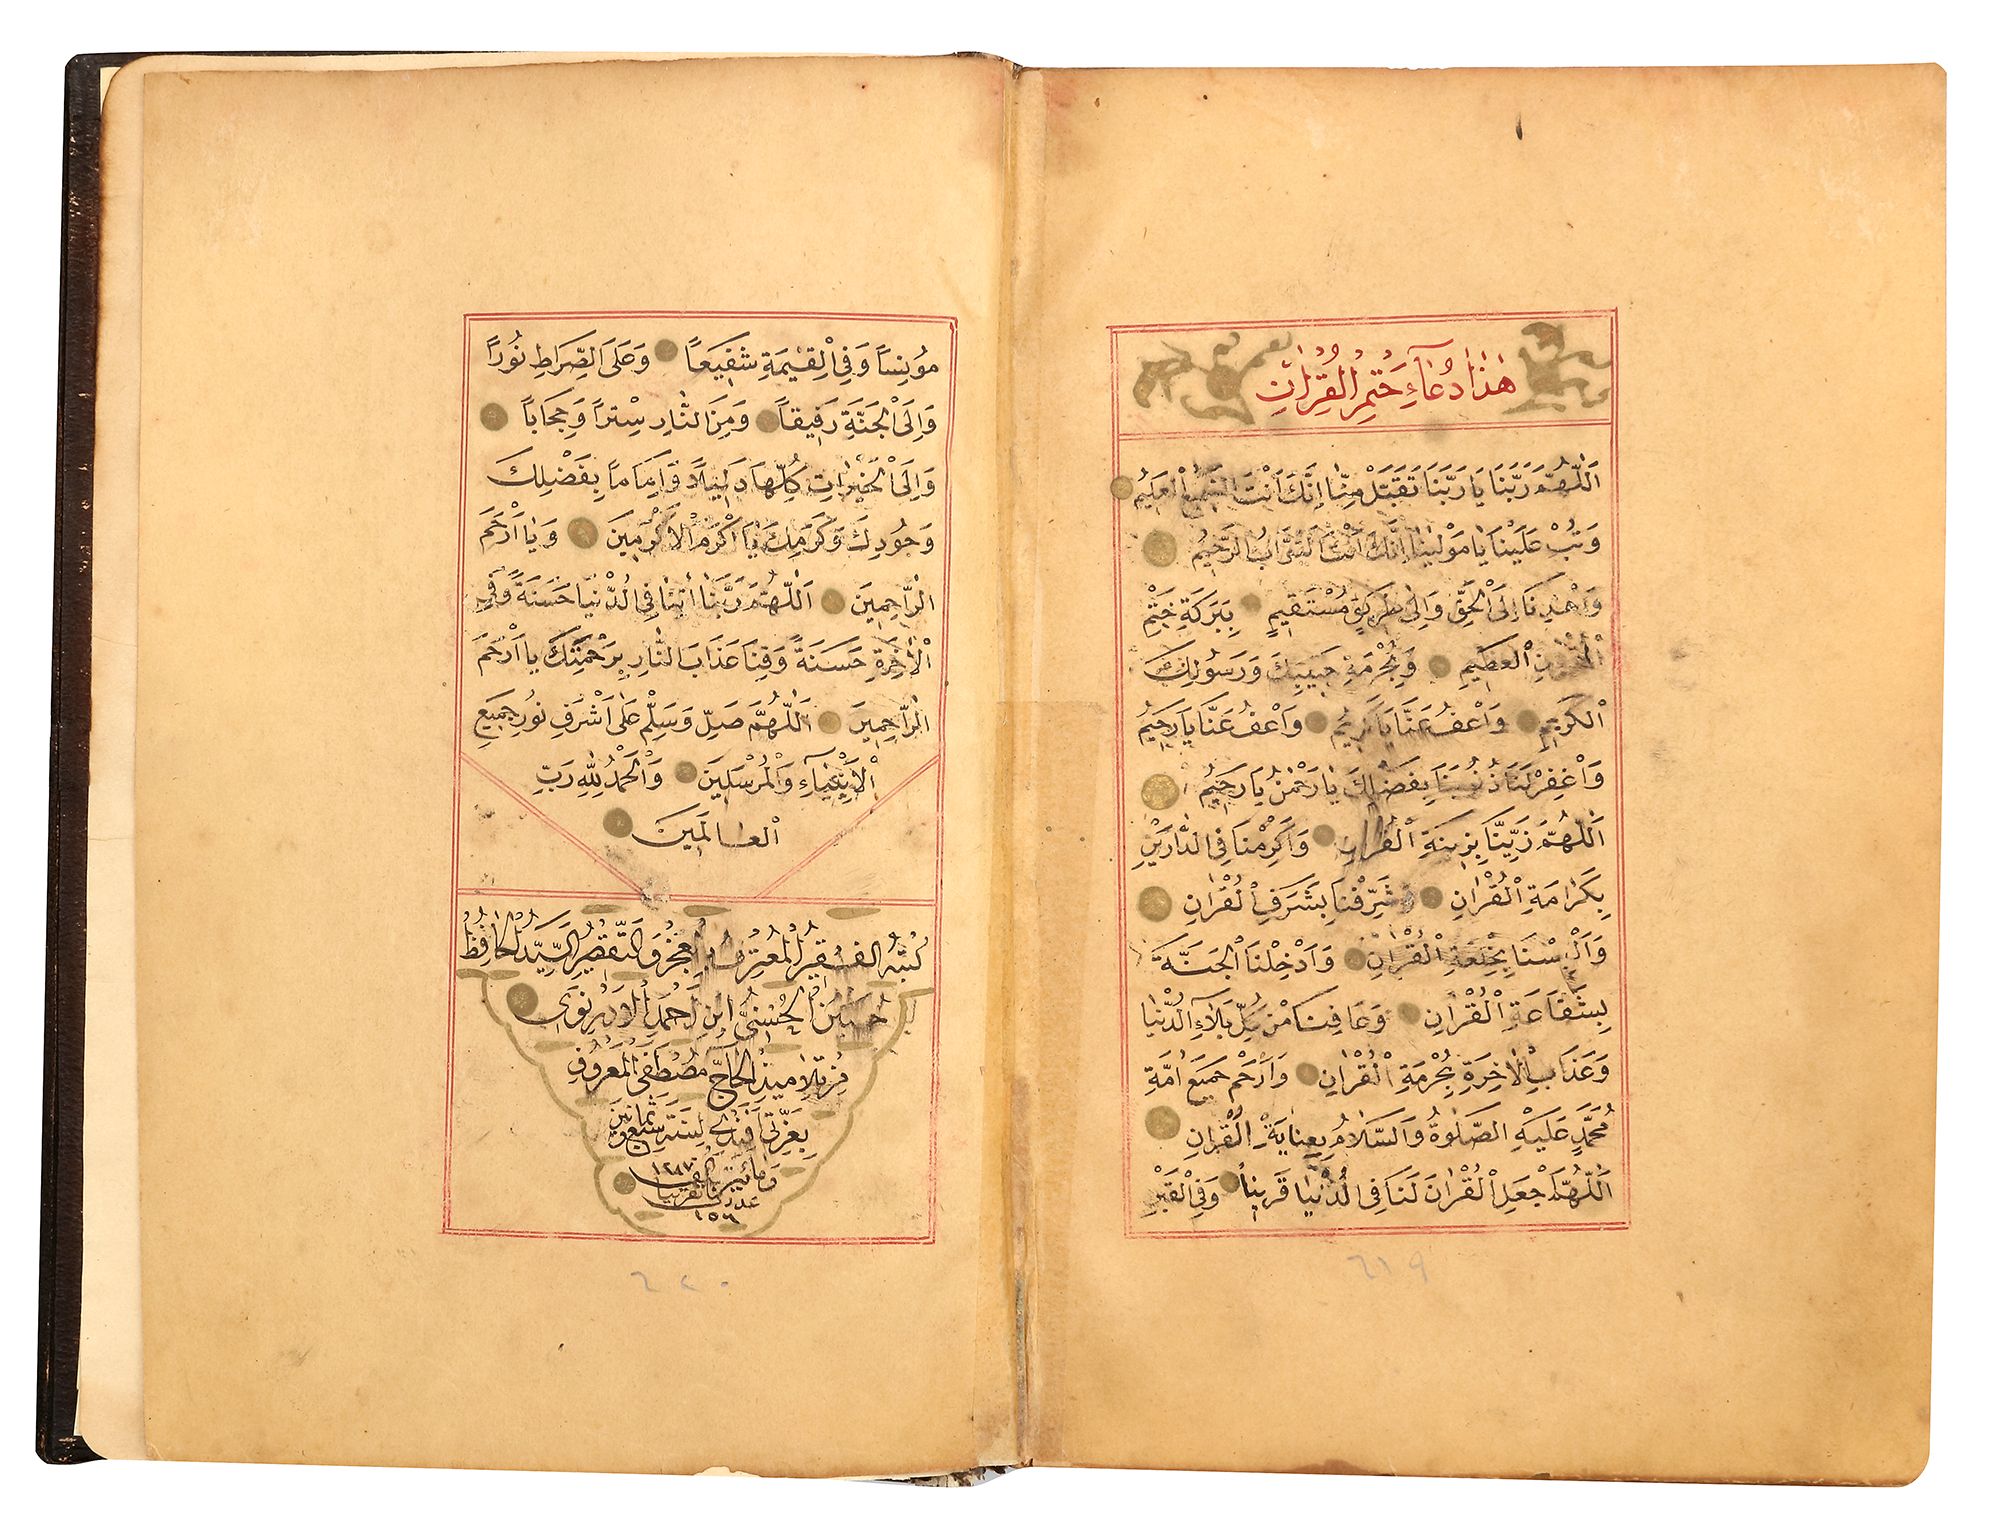 هٰذَا دُعَآءِ خَتْمِ الْقُرْاٰنِ
اَللّٰهُمَّ رَبَّنَا يَا رَبَّنَا تَقَبَّلْ مِنَّا اِنَّكَ اَنْتَ السَّمِيعُ الْعَلِيمُ
وَتُبْ عَلَيْنَا يَا مَوْلٰينَا اِنَّكَ اَنْتَ التَّوَّابُ الرَّحِيمُ
وَاهْدِنَا اِلَى الْحَقِّ وَاِلٰى طَرِيقٍ مُسْتَقِيمٍ بِبَرَكَةِ خَتْمِ
الْقُرْاٰنِ الْعَظِيمِ وَبِحُرْمَةِ حَبِيبِكَ وَرَسُولِكَ
الْكَرِيمِ وَاعْفُ عَنَّا يَا كَرِيمُ وَاعْفُ عَنَّا يَا رَحِيمُ
وَاغْفِرْلَنَا ذُنُوبَنَا بِفَضْلِكَ يَا رَحْمٰنُ يَا رَحِيمُ
اَللّٰهُمَّ زَيِّنَّا بِزِينَةِ الْقُرْاٰنِ وَاَكْرِمْنَا فِى الدَّارَيْنِ
بِكَرَامَةِ الْقُرْاٰنِ وَشَرِّفْنَا بِشَرَفِ الْقُرْاٰنِ
وَاَلْبِسْنَا بِخِلْعَةِ الْقُرْاٰنِ وَاَدْخِلْنَا الْجَنَّةَ
بِشَفَاعَةِ الْقُرْاٰنِ وَعَافِنَا مِنْ كُلِّ بَلَآءِ الدُّنْيَا
وَعَذَابِ الْاٰخِرَةِ بِحُرْمَةِ الْقُرْاٰنِ وَارْحَمْ جَمِيعَ اُمَّةِ
مُحَمَّدٍ عَلَيْهِ الصَّلٰوةُ وَالسَّلَامُ بِعِنَايَةِ الْقُرْاٰنِ
اَللّٰهُمَّ اجْعَلِ الْقُرْاٰنَ لَنَا فِى الدُّنْيَا قَرِينًا وَفِى الْقَبْرِ
٢١٩
مُونِسًا وَفِى الْقِيٰمَةِ شَفِيعًا وَعَلَى الصِّرَاطِ نُورًا
وَاِلَى الْجَنَّةِ رَفِيقًا وَمِنَ النَّارِ سِتْرًا وَحِجَابًا
وَاِلَى الْخَيْرَاتِ كُلِّهَا دَلِيلًا وَاِمَامًا بِفَضْلِكَ
وَجُودِكَ وَكَرَمِكَ يَا اَكْرَمَ الْاَكْرَمِينَ وَيَا اَرْحَمَ
الرَّاحِمِينَ اَللّٰهُمَّ رَبَّنَا اٰتِنَا فِى الدُّنْيَا حَسَنَةً وَفِى
الْاٰخِرَةِ حَسَنَةً وَقِنَا عَذَابَ النَّارِ بِرَحْمَتِكَ يَا اَرْحَمَ
الرَّاحِمِينَ اَللّٰهُمَّ صَلِّ وَسَلِّمْ عَلٰى اَشْرَفِ نُورِ جَمِيعِ
الْاَنْبِيَآءِ وَالْمُرْسَلِينَ وَالْحَمْدُ لِلّٰهِ رَبِّ
الْعَالَمِينَ
كَتَبَهُ الْفَقِيرُ الْمُعْتَرِفُ بِالْعَجْزِ وَالتَّقْصِيرِ السَّيِّدُ الْحَافِظُ
حُسَيْنُ الْحُسْنِىُّ ابْنُ اَحْمَدَ الْاَدِرْنَوِى
مِنْ تَلَامِيذِ الْحَاجِّ مُصْطَفَى الْمَعْرُوفِ
بِعَزْتِى اَفَنْدِى لِسَنَةِ سَبْعٍ وَثَمَانِينَ
وَمِائَتَيْنِ وَاَلْفٍ ١٢٨٧
عدد تقريبا
١٥٦
٢٢٠